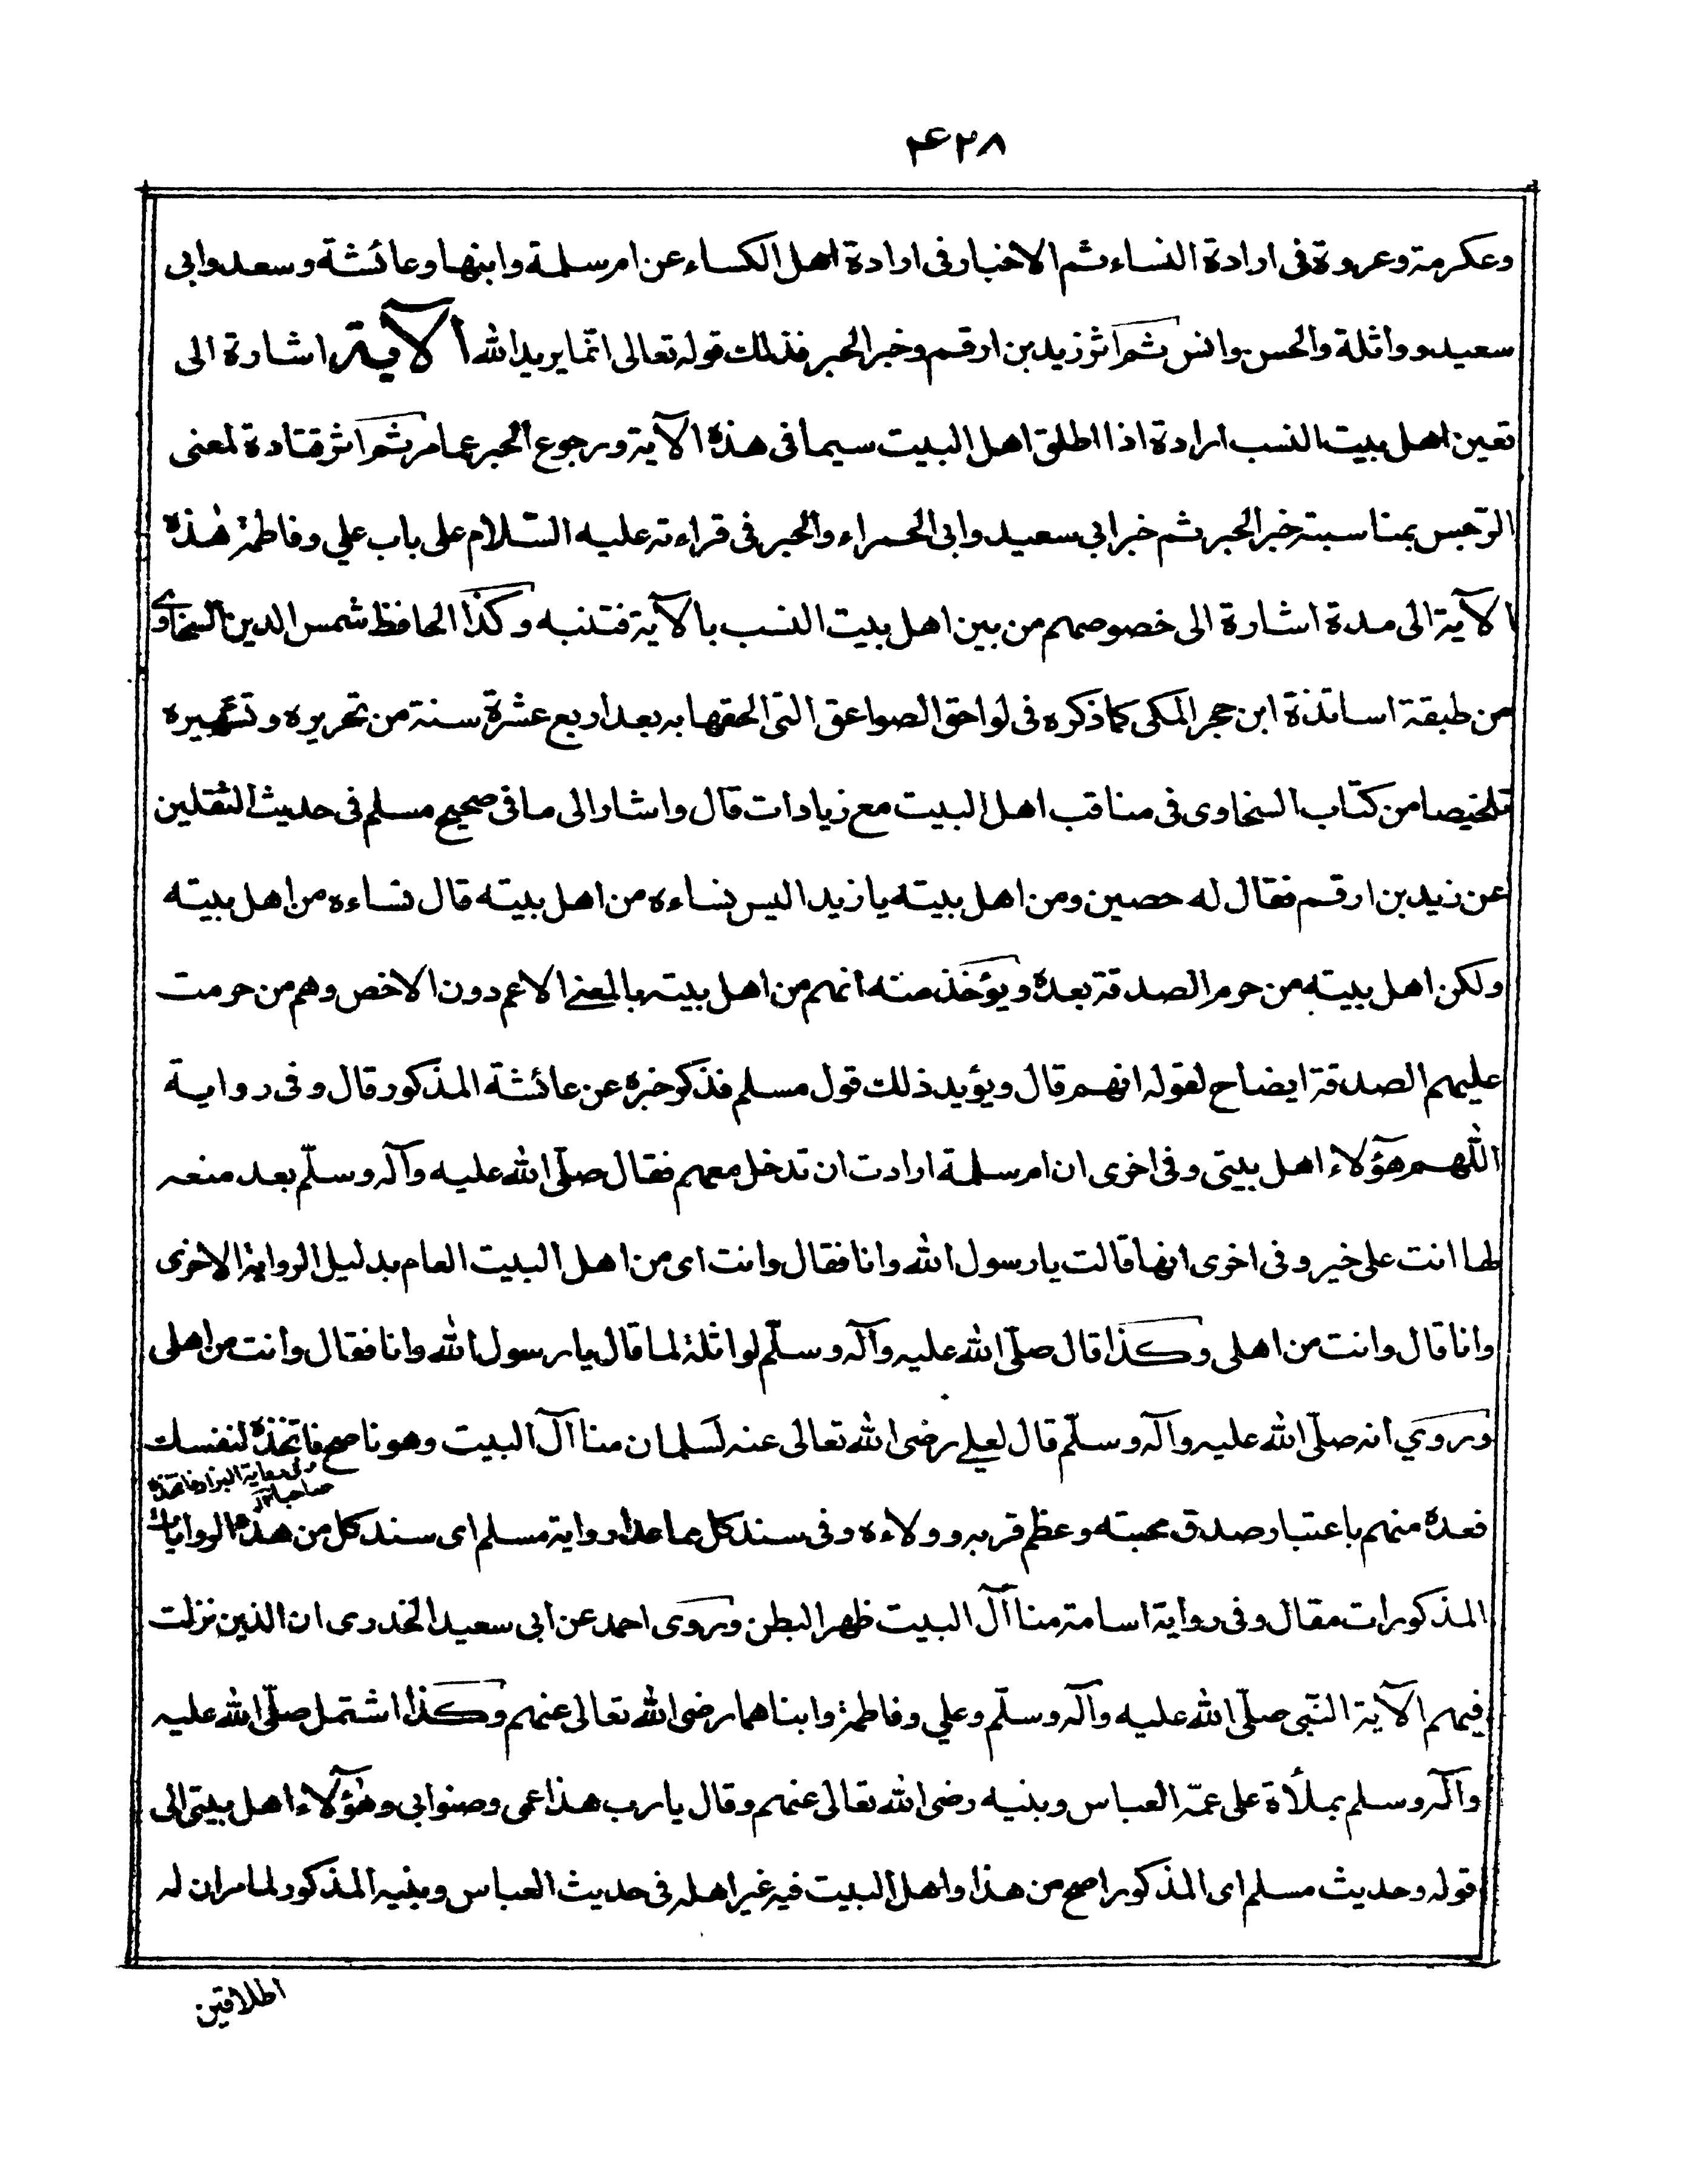 ۴۲۸
وعكرمة وعروة فى ارادة النساء ثم الاخبار فى ارادة اهل الكساء عن ام سلمة وابنها وعائشة وسعد وابى
سعيد وواثلة والحسن وانس ثم اثر زيد بن ارقم وخبر الحبر فذلك قوله تعالى انّما يريد الله الآية اشارة الى
تعين اهل بيت النسب ارادة اذا اطلق اهل البيت سيما فى هذه الآية ورجوع الحبر عما مر ثم اثر قتادة لمعنى
الرّجس بمناسبة خبر الحبر ثم خبر ابي سعيد وابى الحمراء والحبر فى قراءته عليه السّلام على باب علي وفاطمة هذه
الآية الى مدة اشارة الى خصوصهم من بين اهل بيت النسب بالآية فتنبه وكذا الحافظ شمس الدين السخاوي
من طبقة اساتذة ابن حجر المكى كما ذكره فى لواحق الصواعق التى الحقها به بعد اربع عشرة سنة من تحريره وتشهيره
تلخيصا من كتاب السخاوى فى مناقب اهل البيت مع زيادات قال واشار الى ما فى صحيح مسلم فى حديث الثقلين
عن زيد بن ارقم فقال له حصين ومن اهل بيته يا زيد اليس نساءه من اهل بيته قال نساءه من اهل بيته
ولكن اهل بيته من حرم الصدقة بعده ويؤخذ منه انهم من اهل بيته بالمعنے الاعم دون الاخص وهم من حرمت
عليهم الصدقة ايضاح لقوله انهم قال ويؤيد ذلك قول مسلم فذكر خبره عن عائشة المذكور قال وفى رواية
اللّهم هؤلاء اهل بيتى وفى اخرى ان ام سلمة ارادت ان تدخل معهم فقال صلّى الله عليه وآله وسلّم بعد منعه
لها انت على خير وفى اخرى انها قالت يا رسول الله وانا فقال وانت اى من اهل البيت العام بدليل الرواية الاخرى
وانا قال وانت من اهلى وكذا قال صلّى الله عليه وآله وسلّم لواثلة لما قال يا رسول الله وانا فقال وانت من اهلى
وروي انه صلّى الله عليه وآله وسلّم قال لعلے رضى الله تعالى عنه لسلمان منا آل البيت وهو ناصح فاتخذه لنفسك
وفى رواية البزار فاتخذه
صاحبا
فعده منهم باعتبار صدق محبته وعظم قربه وولاءه وفى سند كل عما عدا رواية مسلم اى سند كل من هذه الروايات
المذكورات مقال وفى رواية اسامة منا آل البيت ظهر البطن وروى احمد عن ابى سعيد الخدرى ان الذين نزلت
فيهم الآية النّبى صلّى الله عليه وآله وسلّم وعلي وفاطمة وابناهما رضى الله تعالى عنهم وكذا اشتمل صلّى الله عليه
وآله وسلم بملأة على عمّه العباس وبنيه رضى الله تعالى عنهم وقال يا رب هذا عمى وصنو ابى وهؤلاء اهل بيتى الى
قوله وحديث مسلم اى المذكور اصح من هذا واهل البيت فيه غير اهله فى حديث العباس وبنيه المذكور لما مر ان له
اطلاقين